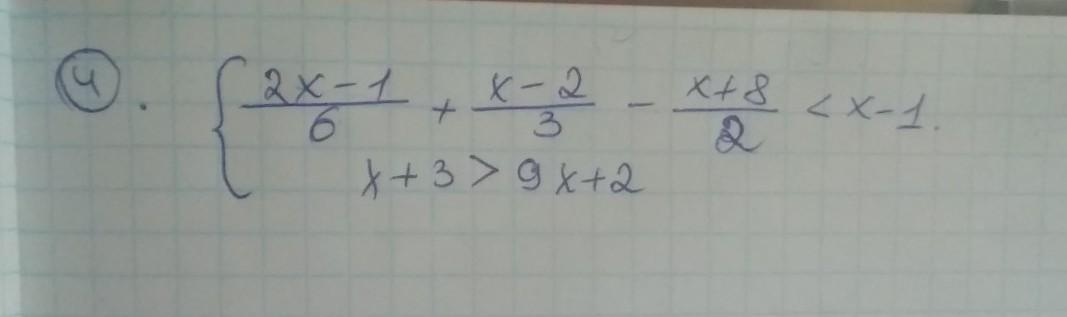 4. { (2x-1)/6 + (x-2)/3 - (x+8)/2 < x-1.
x+3 > 9x+2